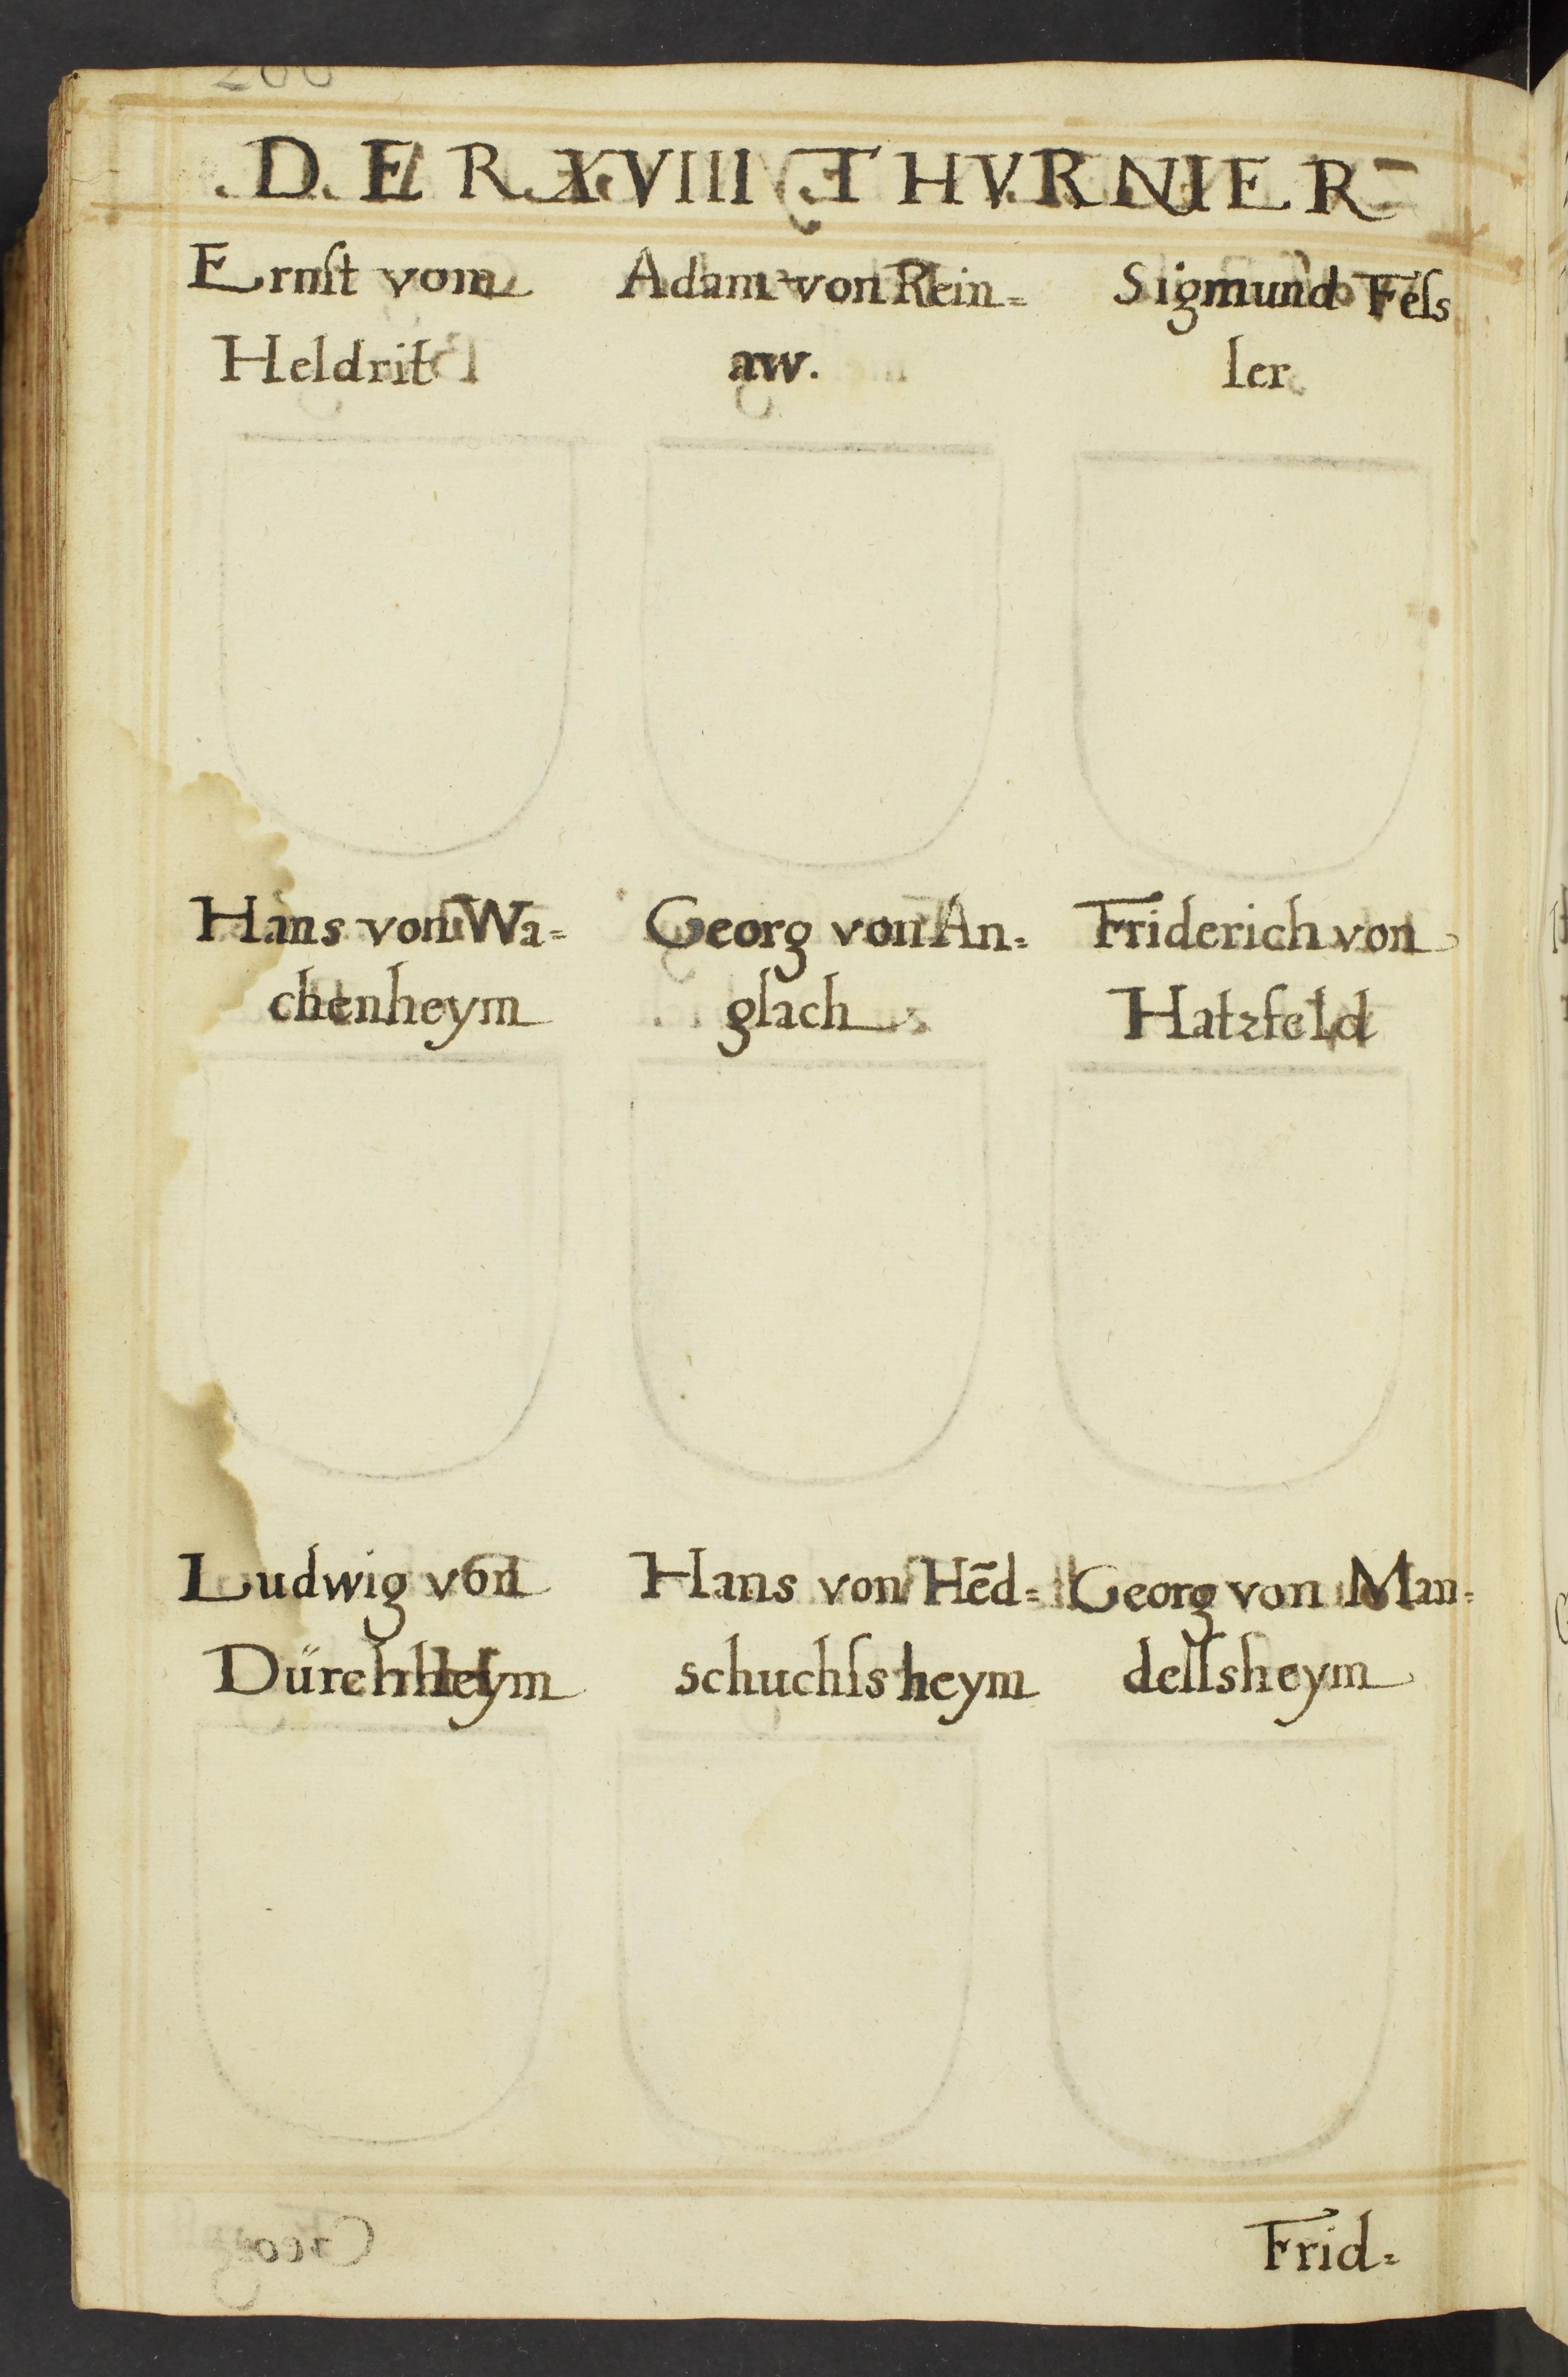 .D.E R XVIII THVRNIER
Ernſt vom
Heldrit
Adam von Rein=
aw.
Sigmund Feſs
ler
Hans von Wa=
chenheym
Georg von An=
glach
Friderich von
Hatzfeld
Ludwig von
Dürchheym
Hans von Hēd=
schuchſsheym
Georg von Man=
dellsheym
Frid=